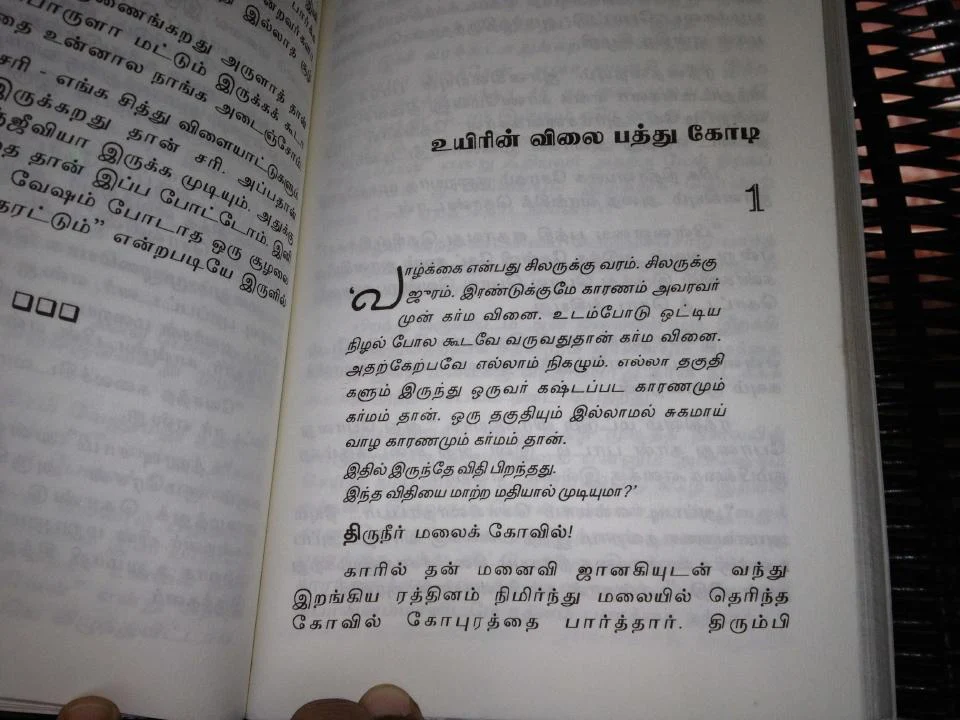 ணைங்கறது அருளாத் தான்
பொருளா மட்டும் இருக்கக் கூடா
உன்னால நாங்க அடைஞ்சோம்
சரி - எங்க சித்து விளையாட்டுகளும்
இருக்கறது தான் சரி. அப்பதான்
ஜீவியா இருக்க முடியும். அதுக்கு
தான் இப்ப போட்டோம். இனி
வேஷம் போடாத ஒரு சூழலை
தரட்டும்” என்றபடியே இருளில்
உயிரின் விலை பத்து கோடி
1
‘வாழ்க்கை என்பது சிலருக்கு வரம். சிலருக்கு
ஜுரம். இரண்டுக்குமே காரணம் அவரவர்
முன் கர்ம வினை. உடம்போடு ஒட்டிய
நிழல் போல கூடவே வருவதுதான் கர்ம வினை.
அதற்கேற்பவே எல்லாம் நிகழும். எல்லா தகுதி
களும் இருந்து ஒருவர் கஷ்டப்பட காரணமும்
கர்மம் தான். ஒரு தகுதியும் இல்லாமல் சுகமாய்
வாழ காரணமும் கர்மம் தான்.
இதில் இருந்தே விதி பிறந்தது.
இந்த விதியை மாற்ற மதியால் முடியுமா?’
திருநீர் மலைக் கோவில்!
காரில் தன் மனைவி ஜானகியுடன் வந்து
இறங்கிய ரத்தினம் நிமிர்ந்து மலையில் தெரிந்த
கோவில் கோபுரத்தை பார்த்தார். திரும்பி